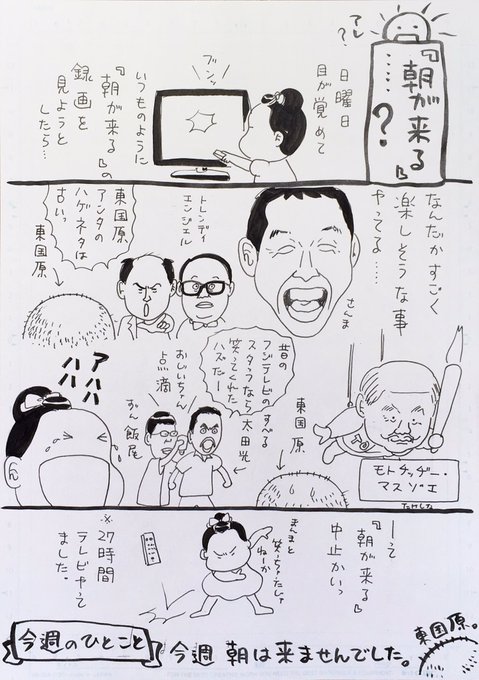 アレ?
『朝が来る』
……?
日曜日
目が覚めて
ブンッ
いつものように
『朝が来る』の
録画を
見ようと
したら…
なんだかすごく
楽しそうな事
やってる……
さんま
トレンディ
エンジェル
東国原
アンタの
ハゲネタは
古いっ
東国原
アハハハ
昔の
フジテレビの
スタッフなら
笑ってくれた
ハズだー
すべる
太田光
おじいちゃん
点滴
おん飯尾
東国原
モトチッヂー・
マスゾエ
たけし
ーって
『朝が来る』
中止かいっ
まんまと
笑っちゃったじょ
ねーか
※27時間
テレビやって
ました。
今週のひとこと
今週 朝は来ませんでした。
東国原。